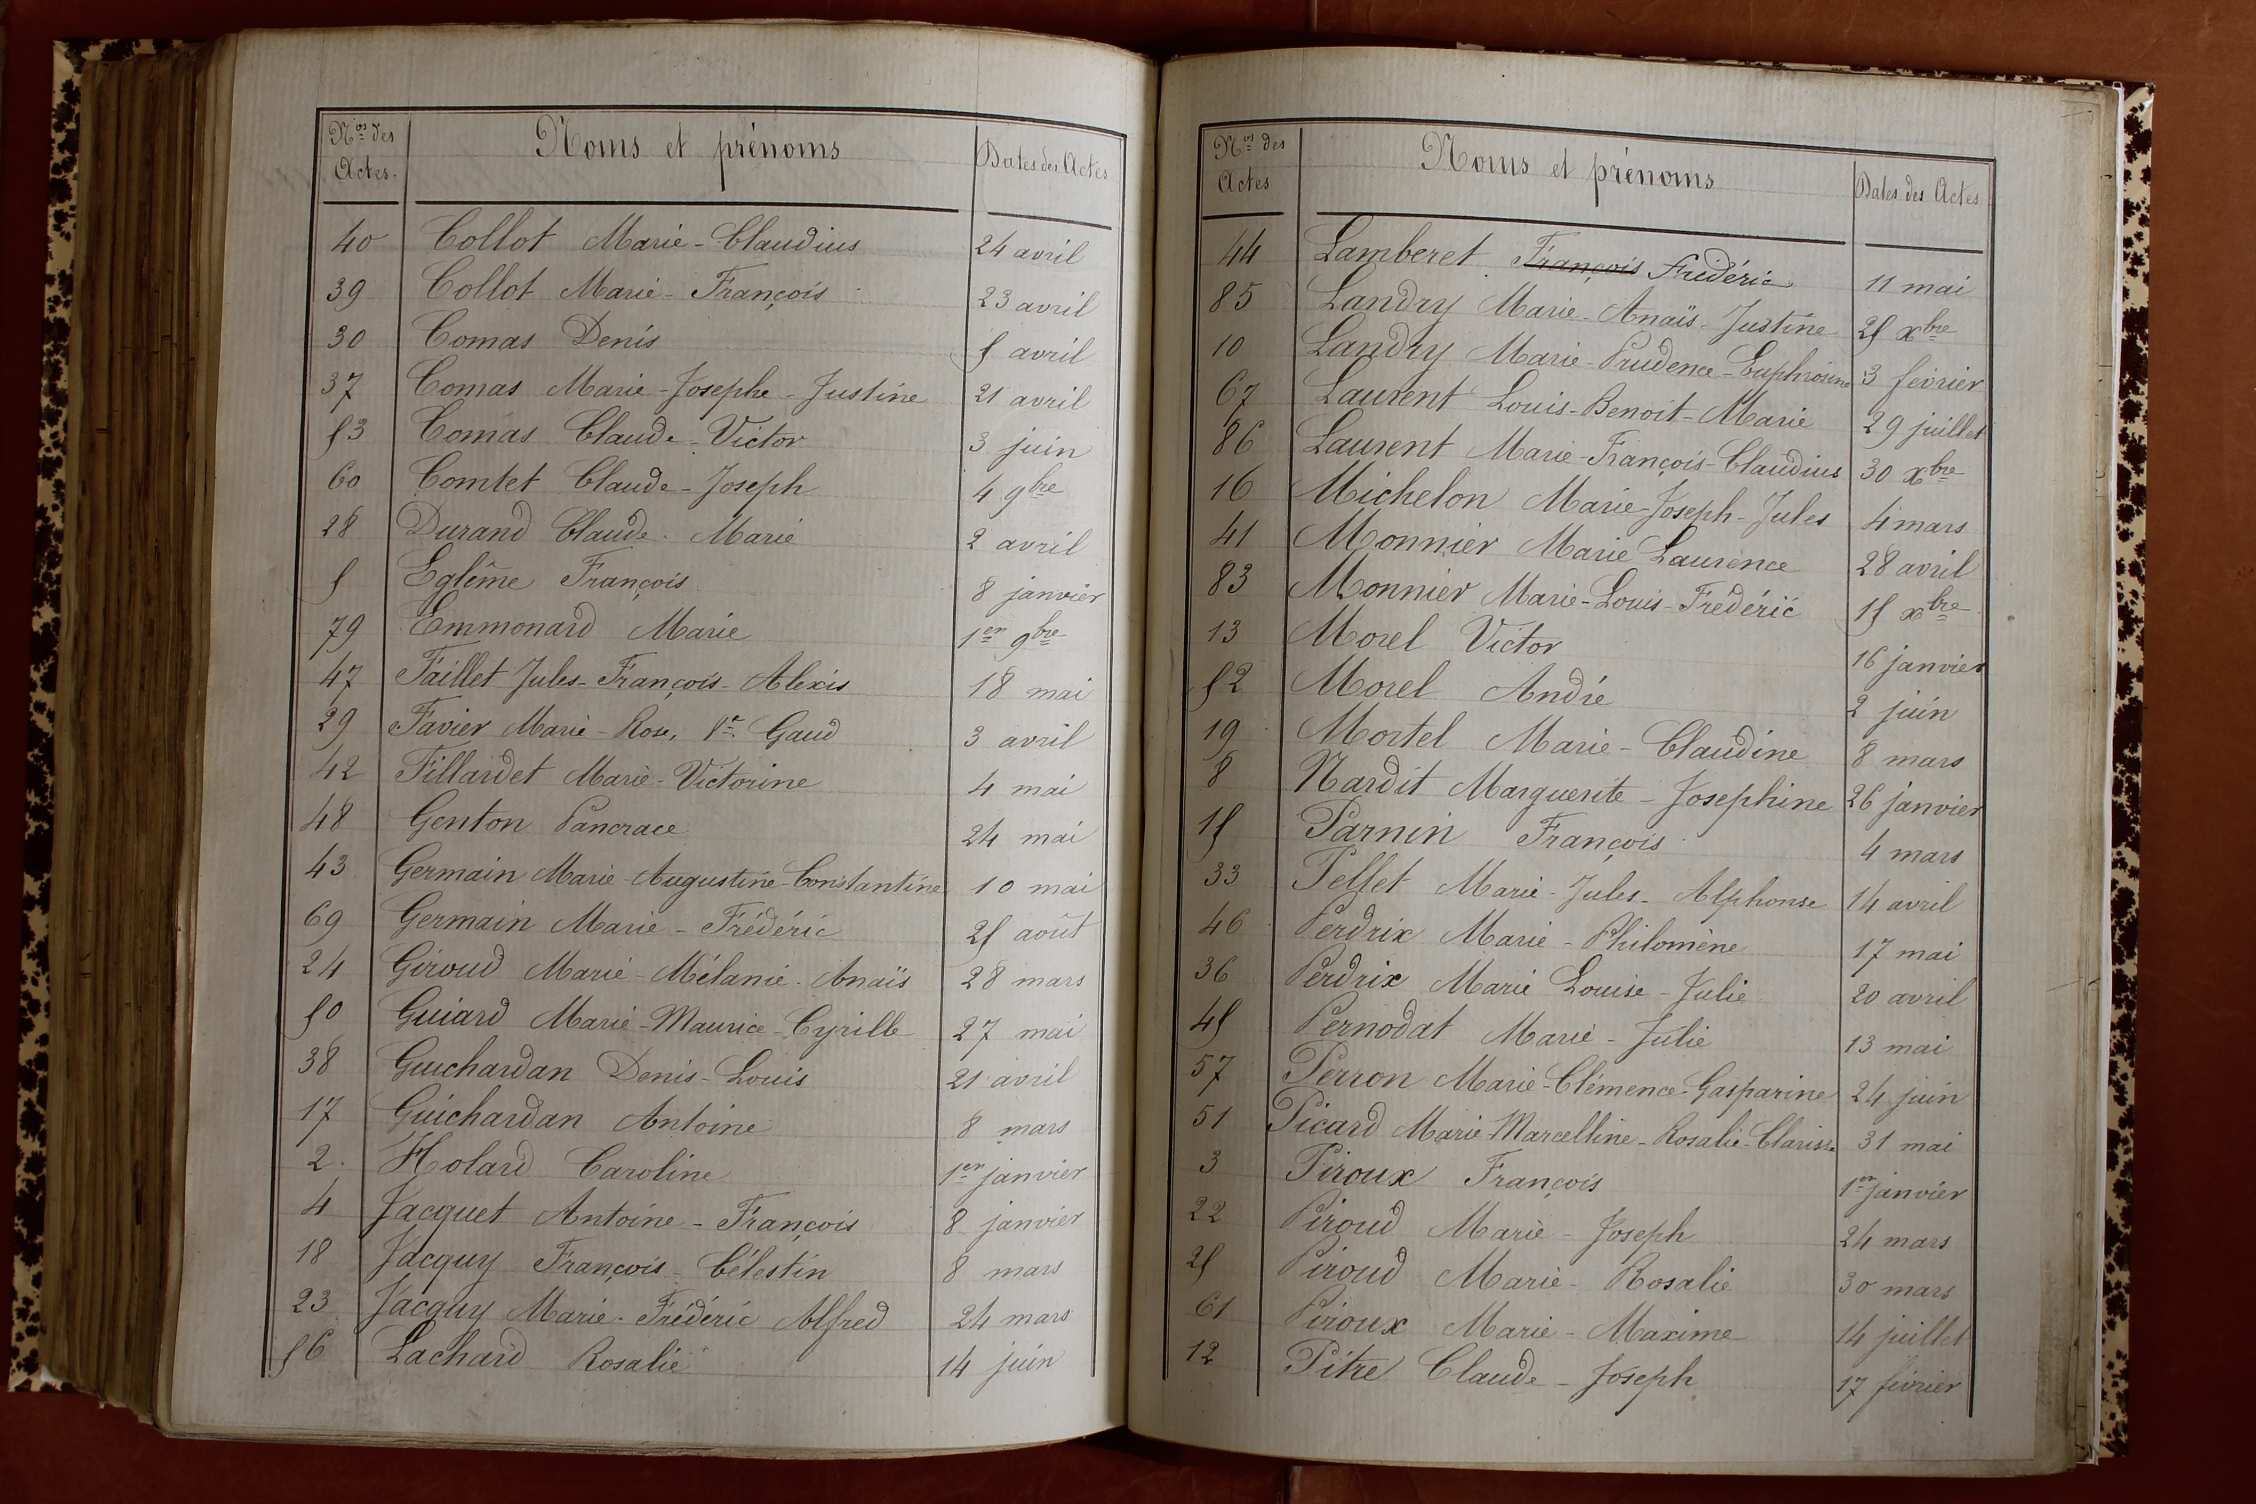 Nos des Actes. Noms et prénoms Dates des Actes
40 Collot Marie-Claudius 24 avril
39 Collot Marie-François 23 avril
30 Comas Denis 5 avril
37 Comas Marie-Josephe-Justine 21 avril
53 Comas Claude-Victor 3 juin
60 Comtet Claude-Joseph 4 9bre
28 Durand Claude-Marie 2 avril
5 Eglême François 8 janvier
79 Emmonard Marie 1er 9bre
47 Faillet Jules-François-Alexis 18 mai
29 Favier Marie-Rose, Ve Gaud 3 avril
42 Fillardet Marie-Victorine 4 mai
48 Genton Pancrace 24 mai
43 Germain Marie-Augustine-Constantine 10 mai
69 Germain Marie-Frédéric 25 août
24 Giroud Marie-Mélanie-Anaïs 28 mars
50 Guiard Marie-Maurice-Cyrille 27 mai
38 Guichardan Denis-Louis 21 avril
17 Guichardan Antoine 8 mars
2. Holard Caroline 1er janvier
4 Jacquet Antoine-François 8 janvier
18 Jacquy François-Célestin 8 mars
23 Jacquy Marie-Frédéric Alfred 24 mars
56 Lachard Rosalie 14 juin
Nos des Actes Noms et prénoms Dates des Actes
44 Lamberet François Frédéric 11 mai
85 Landry Marie-Anaïs-Justine 25 xbre
10 Landry Marie-Prudence-Euphrosine 3 février
67 Laurent Louis-Benoit-Marie 29 juillet
86 Laurent Marie-François-Claudius 30 xbre
16 Michelon Marie-Joseph-Jules 4 mars
41 Monnier Marie Laurence 28 avril
83 Monnier Marie-Louis-Frédéric 15 xbre
13 Morel Victor 16 janvier
52 Morel André 2 juin
19 Mortel Marie-Claudine 8 mars
8 Nardit Marguerite-Josephine 26 janvier
15 Parnin François 4 mars
33 Pellet Marie-Jules-Alphonse 14 avril
46 Perdrix Marie-Philomène 17 mai
36 Perdrix Marie Louise-Julie 20 avril
45 Pernodat Marie-Julie 13 mai
57 Perron Marie-Clémence-Gasparine 24 juin
51 Picard Marie Marcelline-Rosalie-Clarisse 31 mai
3 Piroux François 1er janvier
22 Piroud Marie-Joseph 24 mars
25 Piroud Marie-Rosalie 30 mars
61 Piroux Marie-Maxime 14 juillet
12 Pitre Claude-Joseph 17 février